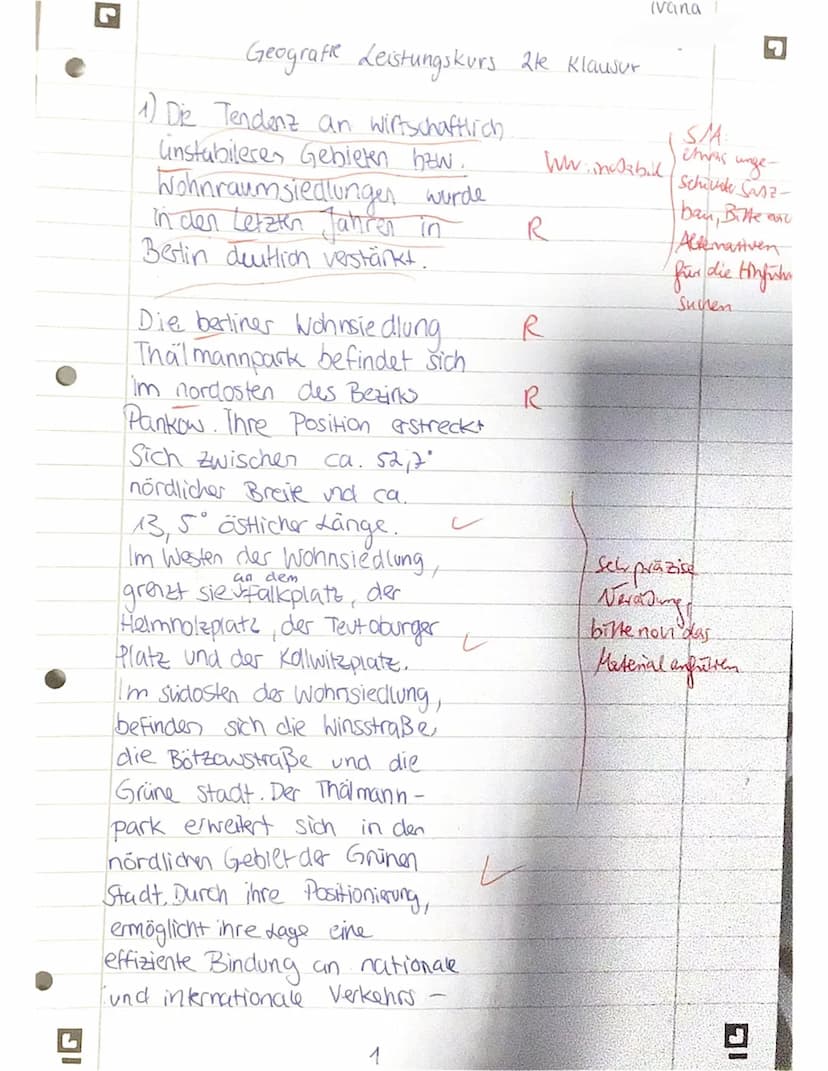 Ivana
Geografie Leistungskurs 2te Klausur
1) Die Tendenz an wirtschaftlich
instabileres Gebieten bzw.
Wohnraumsiedlungen wurde
in den Letzten Jahren in
Berlin deutlich verstärkt.
R
S/A:
etwas unge-
schickte Satz-
bau, Bitte mal
Alternativen
für die Hinführ
suchen
Die berliner Wohnsiedlung
R
Thälmannpark befindet sich
im nordosten des Bezirks
R
Pankow. Ihre Position erstreckt
sich zwischen ca. 52,7°
nördlicher Breite und ca.
13,5° östlicher Länge.
Im Westen der Wohnsiedlung,
grenzt sie an dem Falkplatz, der
Helmholzplatz, der Teutoburger
Platz und der Kollwitzplatz.
Im südosten der Wohnsiedlung,
befinden sich die Winsstraße,
die Bötzowstraße und die
Grüne Stadt. Der Thälmann-
park erweitert sich in den
nördlichen Gebiet der Grünen
Stadt. Durch ihre Positionierung,
ermöglicht ihre Lage eine
effiziente Bindung an nationale
und internationale Verkehrs-
Sehr präzise
Verortung,
bitte noch das
Material anführen
1